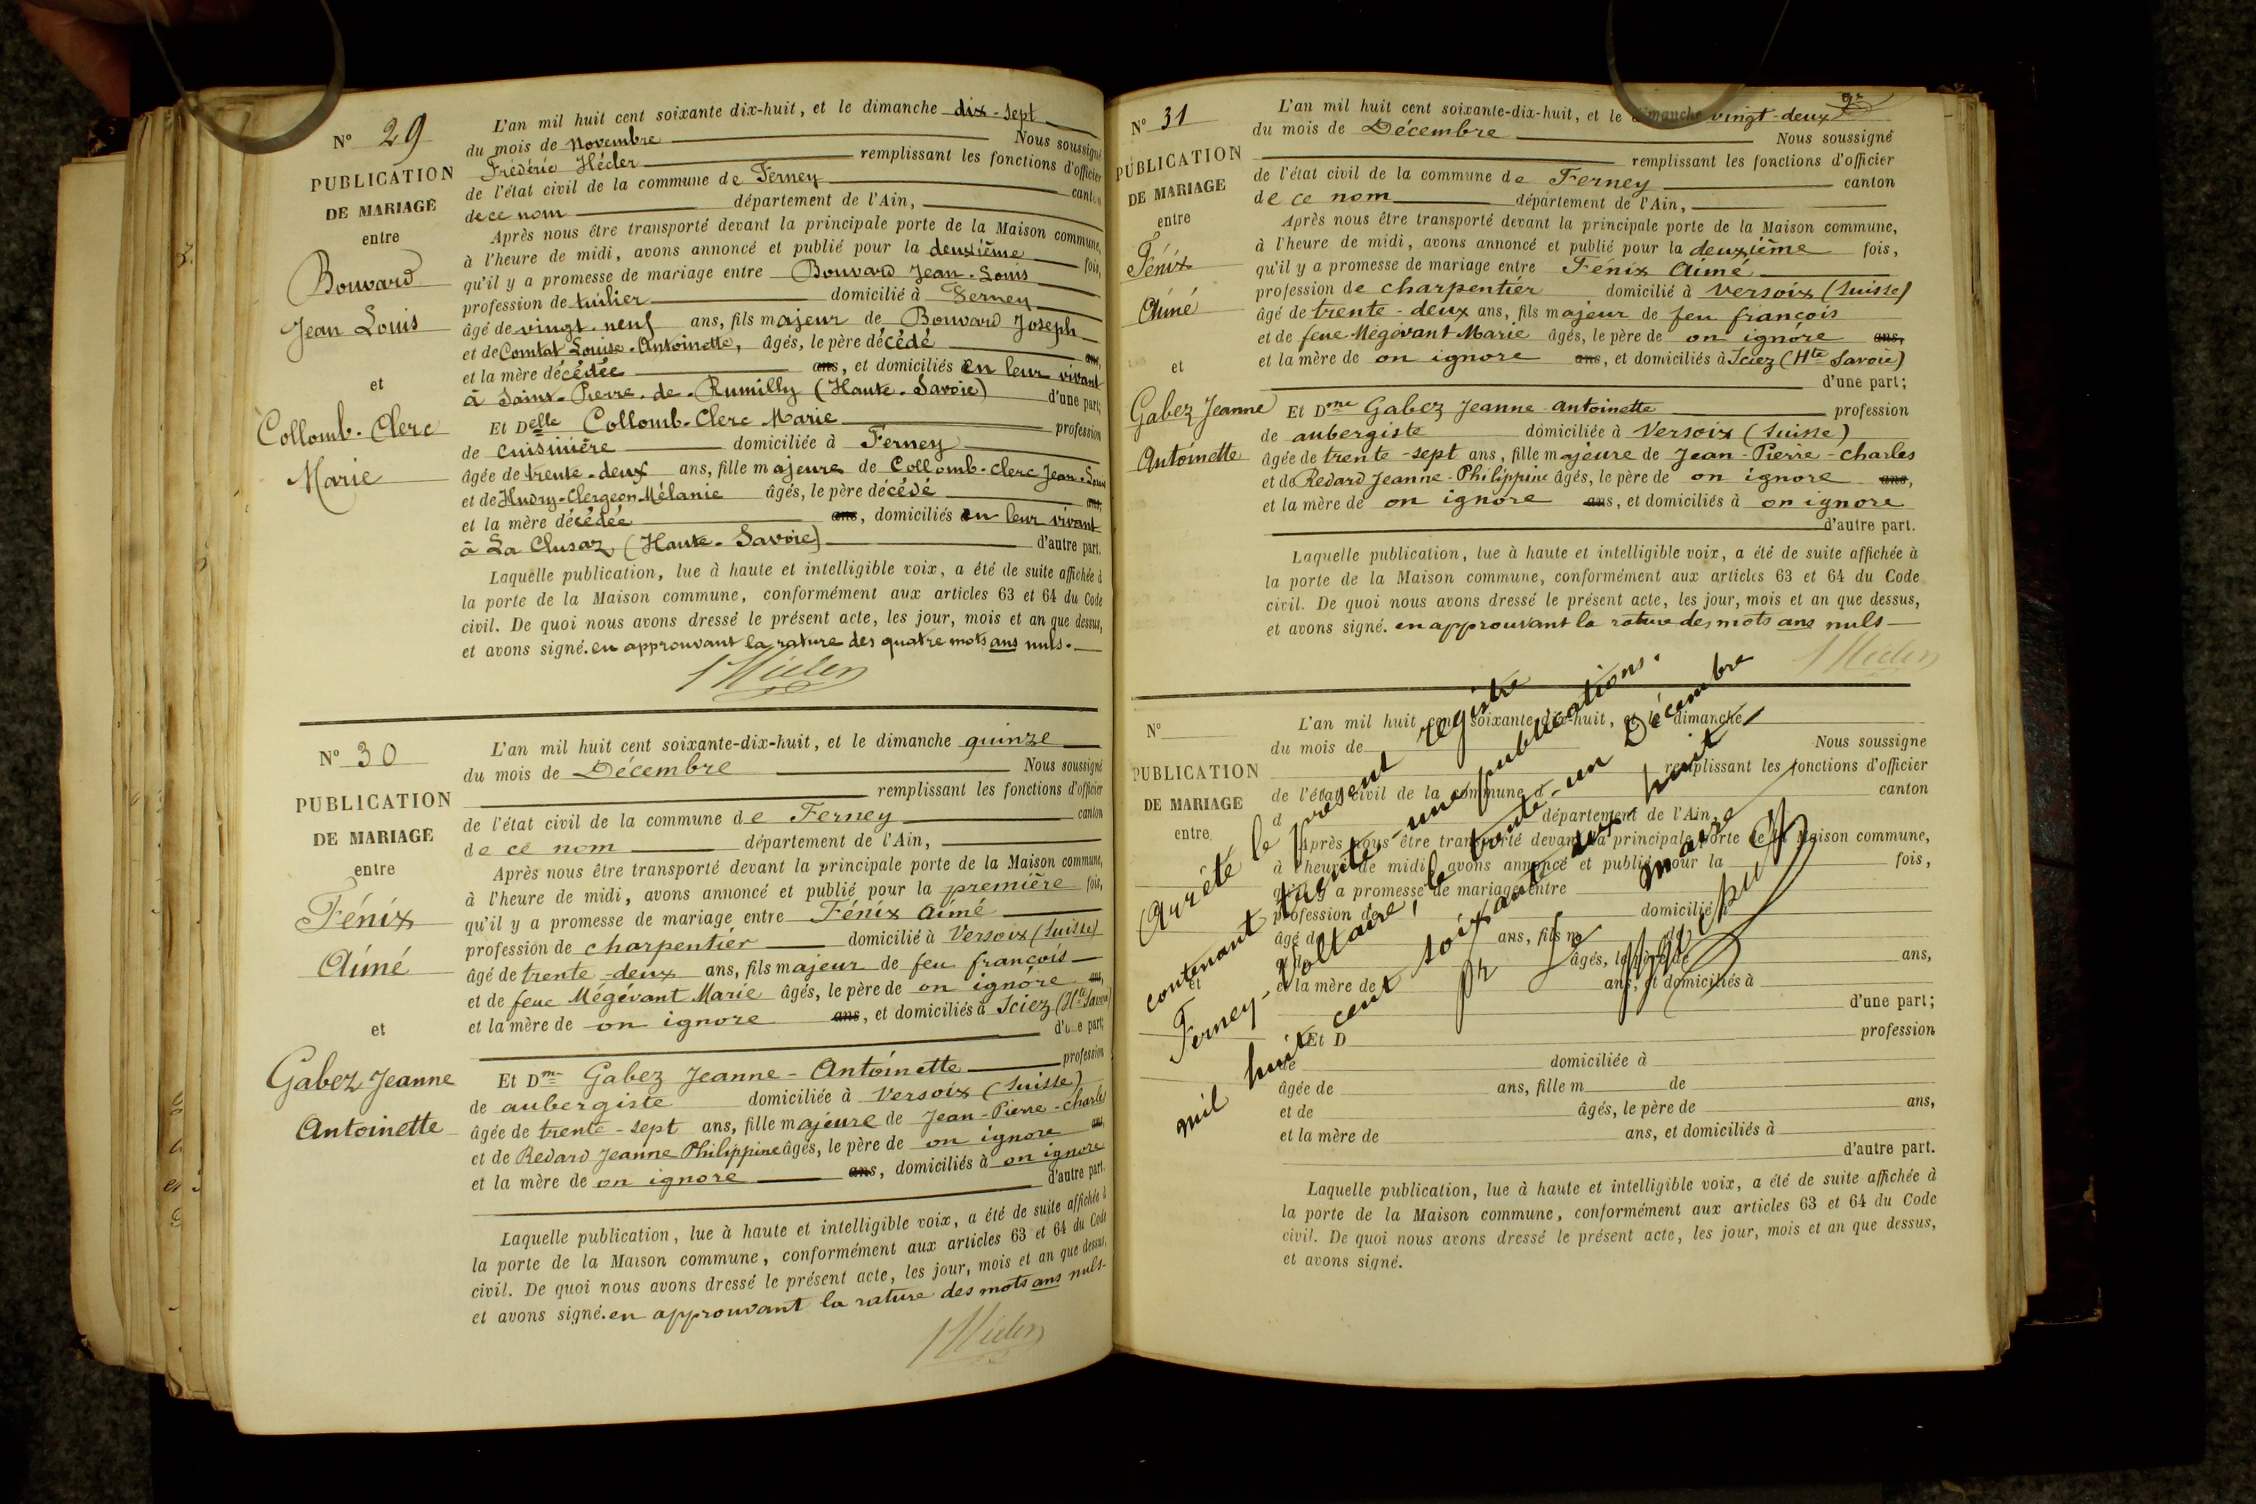 N° 29
PUBLICATION
DE MARIAGE
entre
Bouvard
Jean Louis
et
Collomb-Clerc
Marie
L'an mil huit cent soixante dix-huit, et le dimanche dix-sept
du mois de Novembre Nous soussigné
Frédéric Hécler remplissant les fonctions d'officier
de l'état civil de la commune de Ferney canton
de ce nom département de l'Ain,
Après nous être transporté devant la principale porte de la Maison commune,
à l'heure de midi, avons annoncé et publié pour la deuxième fois,
qu'il y a promesse de mariage entre Bouvard Jean-Louis
profession de tuilier domicilié à Ferney
âgé de vingt-neuf ans, fils majeur de Bouvard Joseph
et de Comtat Louise-Antoinette, âgés, le père décédé ans,
et la mère décédée ans, et domiciliés en leur vivant
à Saint-Pierre-de-Rumilly (Haute-Savoie) d'une part;
Et Delle Collomb-Clerc Marie profession
de cuisinière domiciliée à Ferney
âgée de trente-deux ans, fille majeure de Collomb-Clerc Jean-Louis
et de Hudry-Clergeon-Mélanie âgés, le père décédé ans,
et la mère décédée ans, domiciliés en leur vivant
à La Clusaz (Haute-Savoie) d'autre part.
Laquelle publication, lue à haute et intelligible voix, a été de suite affichée à
la porte de la Maison commune, conformément aux articles 63 et 64 du Code
civil. De quoi nous avons dressé le présent acte, les jour, mois et an que dessus,
et avons signé. en approuvant la rature des quatre mots ans nuls.
N° 30
PUBLICATION
DE MARIAGE
entre
Fénix
Aimé
et
Gabez Jeanne
Antoinette
L'an mil huit cent soixante-dix-huit, et le dimanche quinze
du mois de Décembre Nous soussigné
remplissant les fonctions d'officier
de l'état civil de la commune de Ferney canton
de ce nom département de l'Ain,
Après nous être transporté devant la principale porte de la Maison commune,
à l'heure de midi, avons annoncé et publié pour la première fois,
qu'il y a promesse de mariage entre Fénix Aimé
profession de charpentier domicilié à Versoix (Suisse)
âgé de trente-deux ans, fils majeur de feu françois
et de feue Mégévant Marie âgés, le père de on ignore ans,
et la mère de on ignore ans, et domiciliés à Sciez (Hte Savoie)
d'une part;
Et Dme Gabez Jeanne-Antoinette profession
de aubergiste domiciliée à Versoix (Suisse)
âgée de trente-sept ans, fille majeure de Jean-Pierre-charles
et de Redard Jeanne Philippine âgés, le père de on ignore ans,
et la mère de on ignore ans, domiciliés à on ignore
d'autre part.
Laquelle publication, lue à haute et intelligible voix, a été de suite affichée à
la porte de la Maison commune, conformément aux articles 63 et 64 du Code
civil. De quoi nous avons dressé le présent acte, les jour, mois et an que dessus,
et avons signé. en approuvant la rature des mots ans nuls.
N° 31
PUBLICATION
DE MARIAGE
entre
Fénix
Aimé
et
Gabez Jeanne
Antoinette
L'an mil huit cent soixante-dix-huit, et le dimanche vingt-deux
du mois de Décembre Nous soussigné
remplissant les fonctions d'officier
de l'état civil de la commune de Ferney canton
de ce nom département de l'Ain,
Après nous être transporté devant la principale porte de la Maison commune,
à l'heure de midi, avons annoncé et publié pour la deuxième fois,
qu'il y a promesse de mariage entre Fénix Aimé
profession de charpentier domicilié à Versoix (Suisse)
âgé de trente-deux ans, fils majeur de feu françois
et de feue Mégévant Marie âgés, le père de on ignore ans,
et la mère de on ignore ans, et domiciliés à Sciez (Hte Savoie)
d'une part;
Et Dme Gabez Jeanne-Antoinette profession
de aubergiste domiciliée à Versoix (Suisse)
âgée de trente-sept ans, fille majeure de Jean-Pierre-charles
et de Redard Jeanne-Philippine âgés, le père de on ignore ans,
et la mère de on ignore ans, et domiciliés à on ignore
d'autre part.
Laquelle publication, lue à haute et intelligible voix, a été de suite affichée à
la porte de la Maison commune, conformément aux articles 63 et 64 du Code
civil. De quoi nous avons dressé le présent acte, les jour, mois et an que dessus,
et avons signé. en approuvant la rature des mots ans nuls
N°
PUBLICATION
DE MARIAGE
entre
et
L'an mil huit cent soixante-dix-huit, et le dimanche
du mois de Nous soussigné
remplissant les fonctions d'officier
de l'état civil de la commune d canton
d département de l'Ain,
Après nous être transporté devant la principale porte de la Maison commune,
à l'heure de midi, avons annoncé et publié pour la fois,
qu'il y a promesse de mariage entre
profession de domicilié à
âgé de ans, fils m de
et de âgés, le père de ans,
et la mère de ans, et domiciliés à
d'une part;
Et D profession
de domiciliée à
âgée de ans, fille m de
et de âgés, le père de ans,
et la mère de ans, et domiciliés à
d'autre part.
Laquelle publication, lue à haute et intelligible voix, a été de suite affichée à
la porte de la Maison commune, conformément aux articles 63 et 64 du Code
civil. De quoi nous avons dressé le présent acte, les jour, mois et an que dessus,
et avons signé.
Arrêté le présent registre
contenant trente-une publications.
Ferney-Voltaire, le trente-un Décembre
mil huit cent soixante dix huit
pr le maire